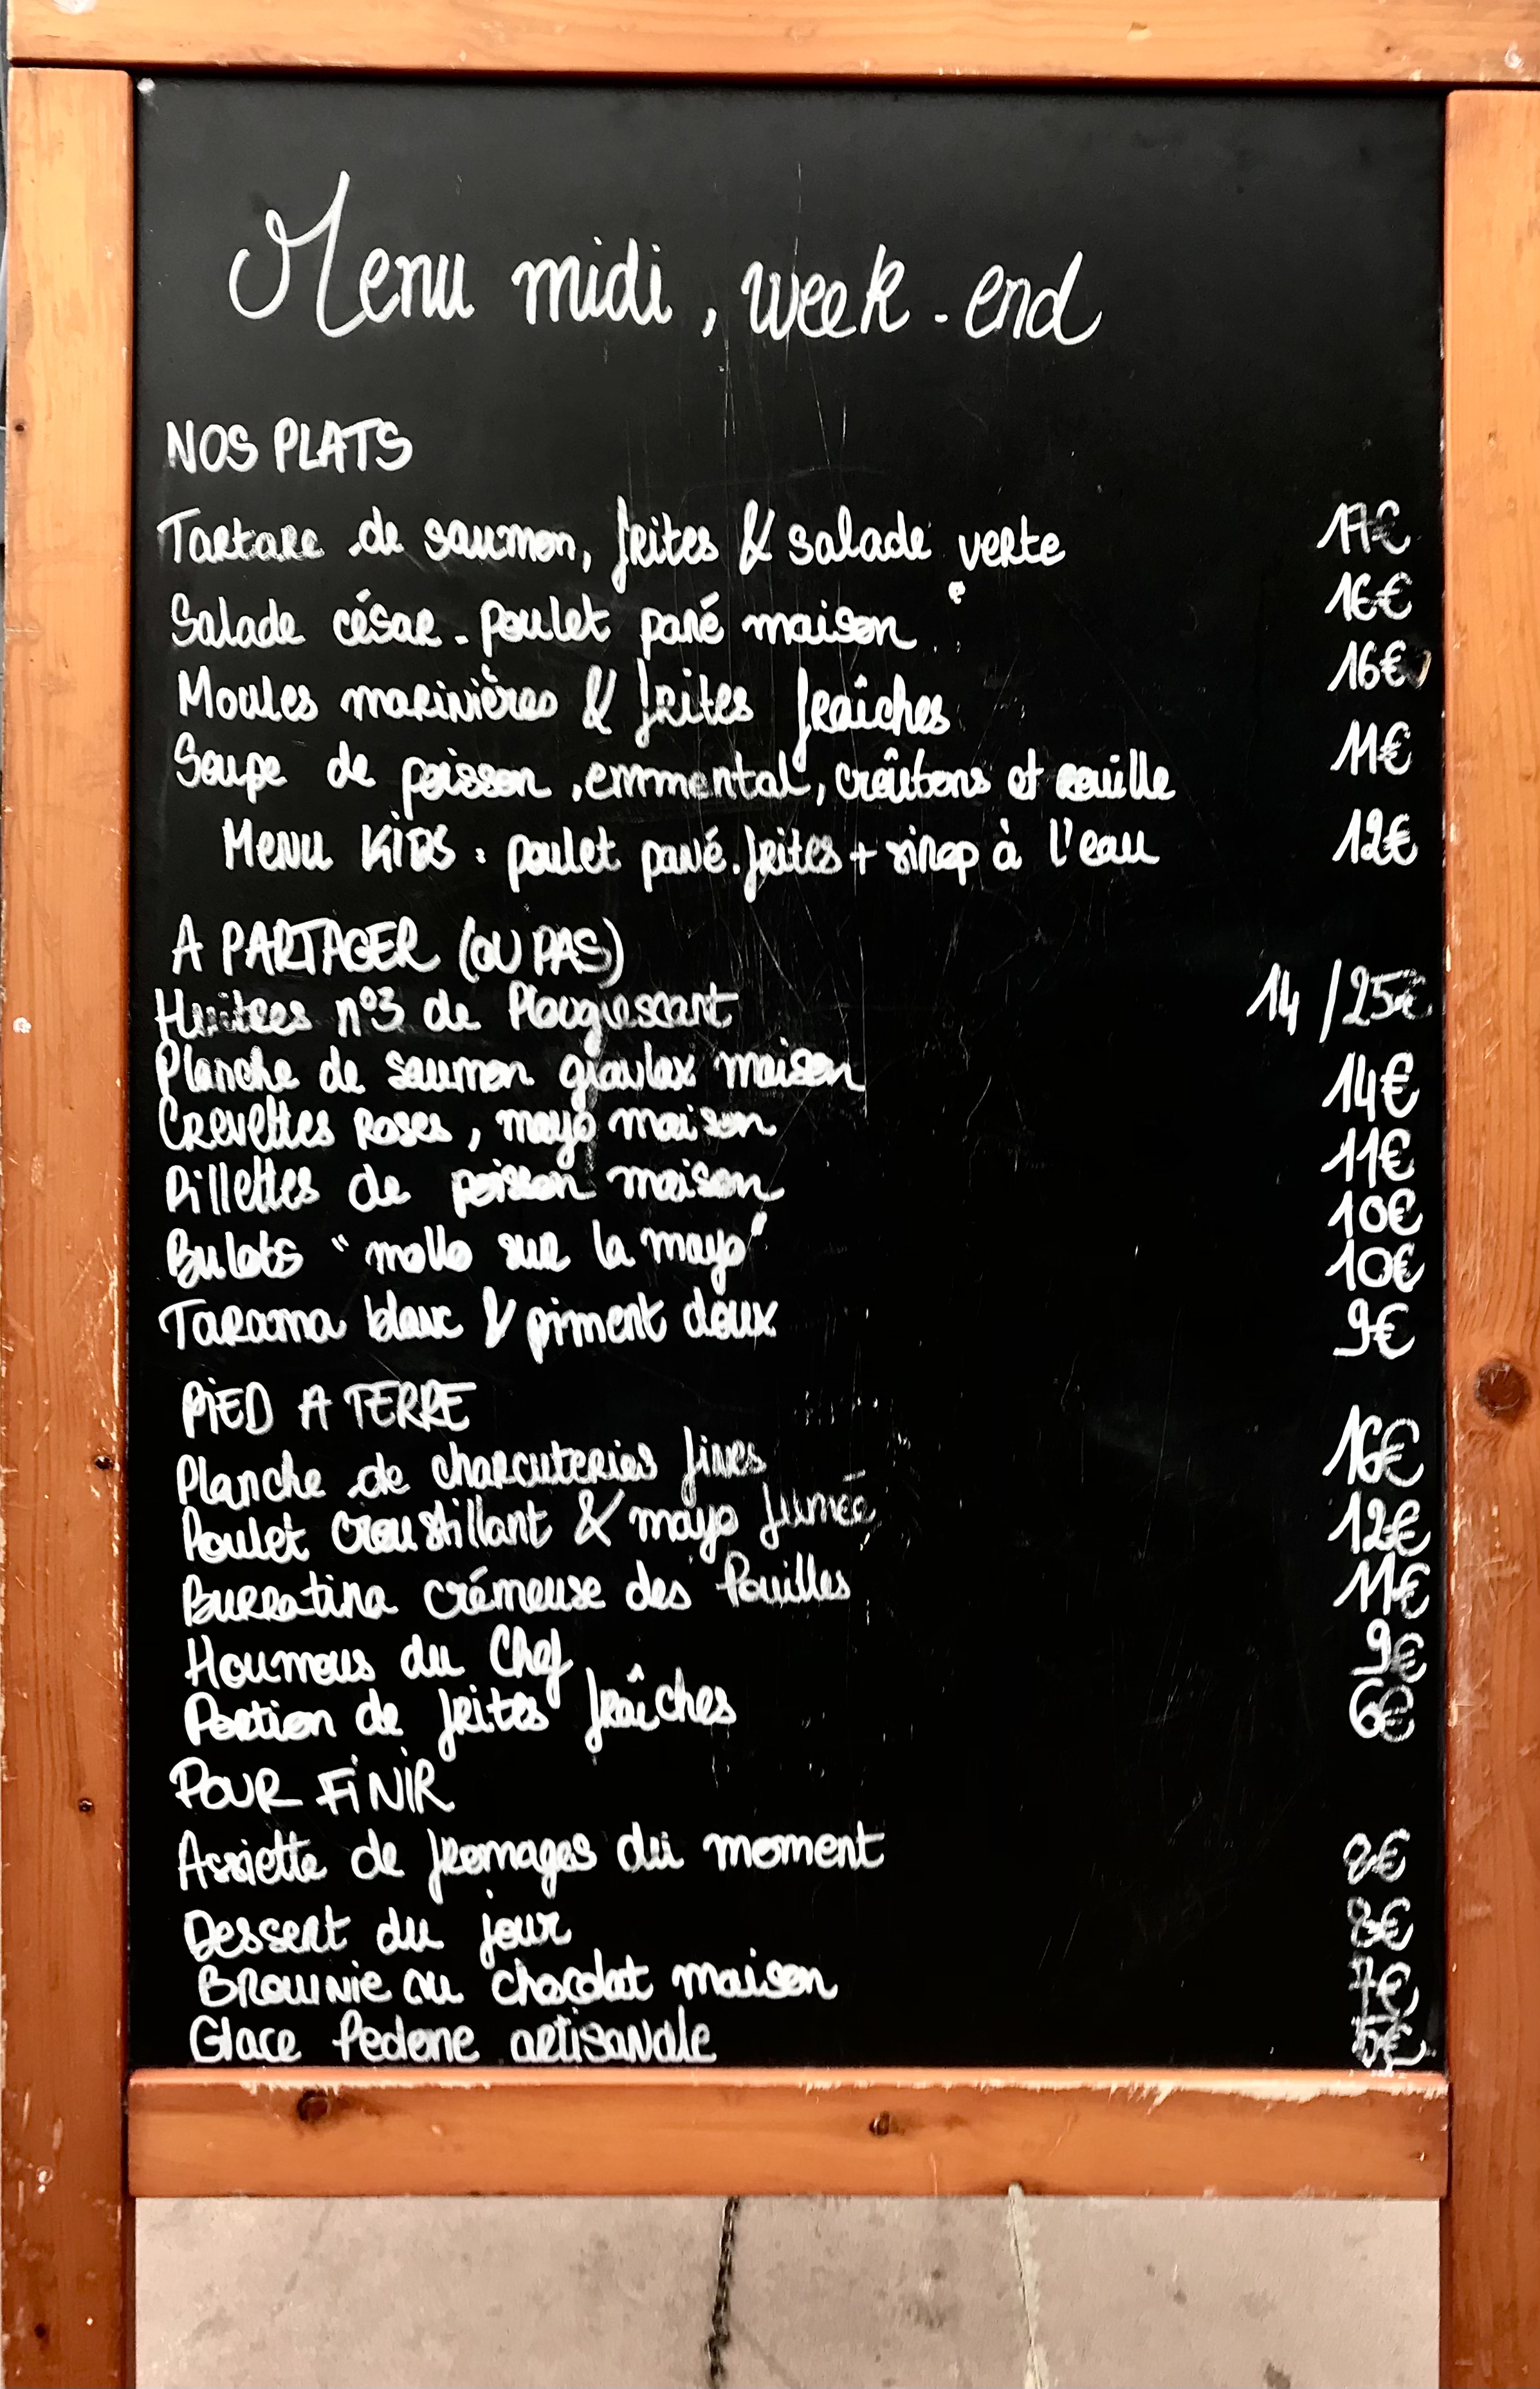 Menu midi, week-end
NOS PLATS
Tartare de saumon, frites & salade verte 17€
Salade césar - poulet pané maison 16€
Moules marinières & frites fraîches 16€
Soupe de poisson, emmental, croûtons et rouille 11€
Menu KIDS : poulet pané. frites + sirop à l'eau 12€
A PARTAGER (OU PAS)
Huitres n°3 de Plougrescant 14 / 25€
Planche de saumon gravlax maison 14€
Crevettes roses, mayo maison 11€
Rillettes de poisson maison 10€
Bulots "mollo sur la mayo" 10€
Tarama blanc & piment doux 9€
PIED A TERRE
Planche de charcuteries fines 16€
Poulet croustillant & mayo fumée 12€
Burratina crémeuse des Pouilles 11€
Houmous du Chef 9€
Portion de frites fraîches 6€
POUR FINIR
Assiette de fromages du moment 8€
Dessert du jour 8€
Brownie au chocolat maison 7€
Glace Pedone artisanale 5€